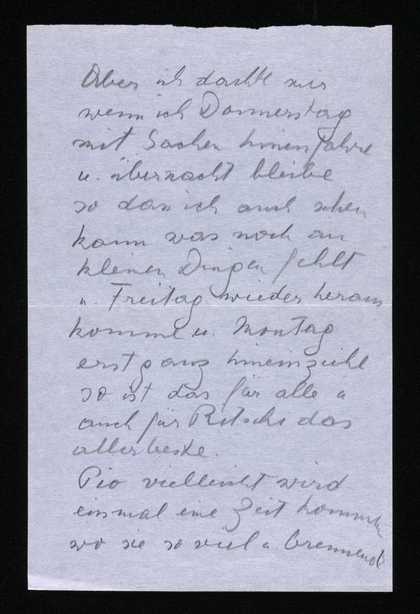 Aber ich dachte mir
wenn ich Donnerstag
mit Sachen hineinfahre
u. übernacht bleibe
so dass ich auch sehen
kann was noch an
kleinen Dingen fehlt
u. Freitag wieder heraus
komme u. Montag
erst ganz hineinziehe
so ist das für alle u
auch für Ritschi das
allerbeste.
Pio vielleicht wird
einmal eine Zeit kommen
wo sie so viel u. brennend